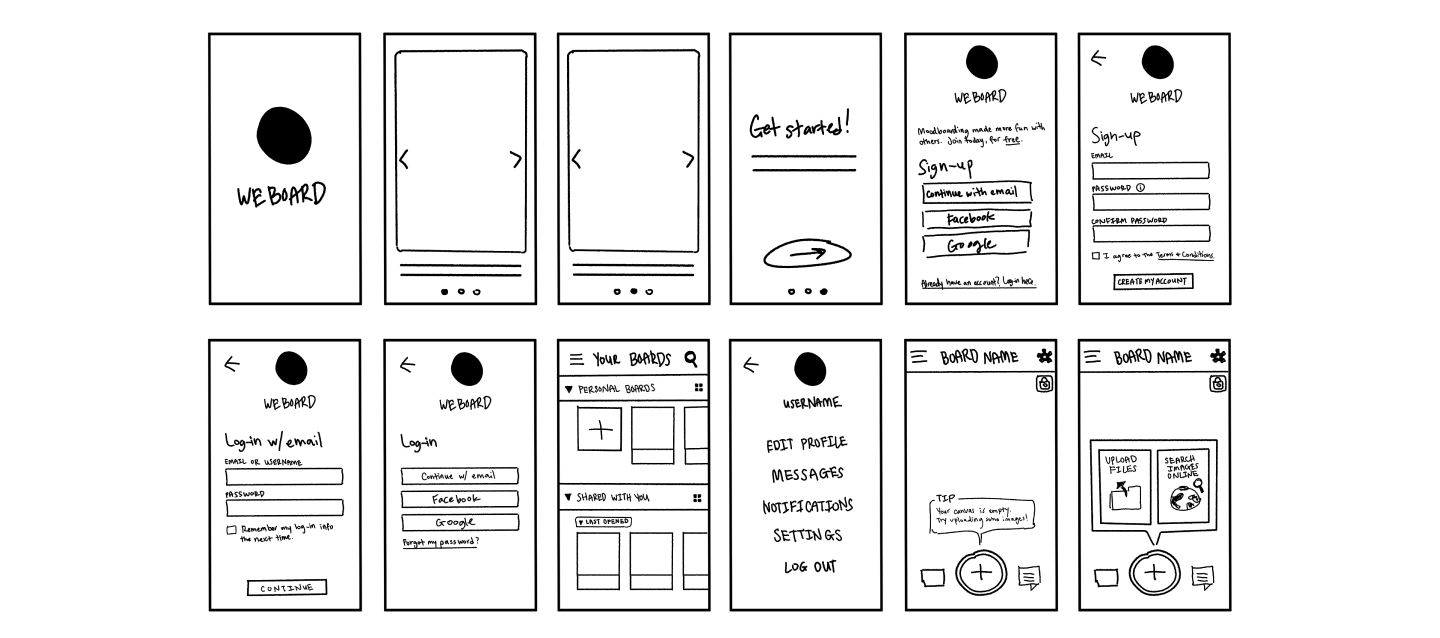 WEBOARD
Get started!
WEBOARD
Moodboarding made more fun with
others. Join today, for free.
Sign-up
Continue with email
Facebook
Google
Already have an account? Log-in here.
WEBOARD
Sign-up
EMAIL
PASSWORD i
CONFIRM PASSWORD
I agree to the Terms + Conditions.
CREATE MY ACCOUNT
WEBOARD
Log-in w/ email
EMAIL OR USERNAME
PASSWORD
Remember my log-in info
the next time.
CONTINUE
WEBOARD
Log-in
Continue w/ email
Facebook
Google
Forgot my password?
YOUR BOARDS
PERSONAL BOARDS
SHARED WITH YOU
LAST OPENED
USERNAME
EDIT PROFILE
MESSAGES
NOTIFICATIONS
SETTINGS
LOG OUT
BOARD NAME
TIP
Your canvas is empty.
Try uploading some images!
BOARD NAME
UPLOAD
FILES
SEARCH
IMAGES
ONLINE